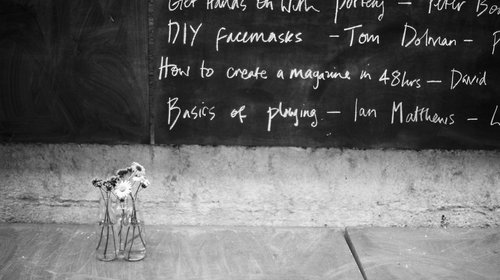 Get Hands on With pottery – Peter
DIY facemasks – Tom Dolman –
How to create a magazine in 48hrs – David
Basics of playing – Ian Matthews –